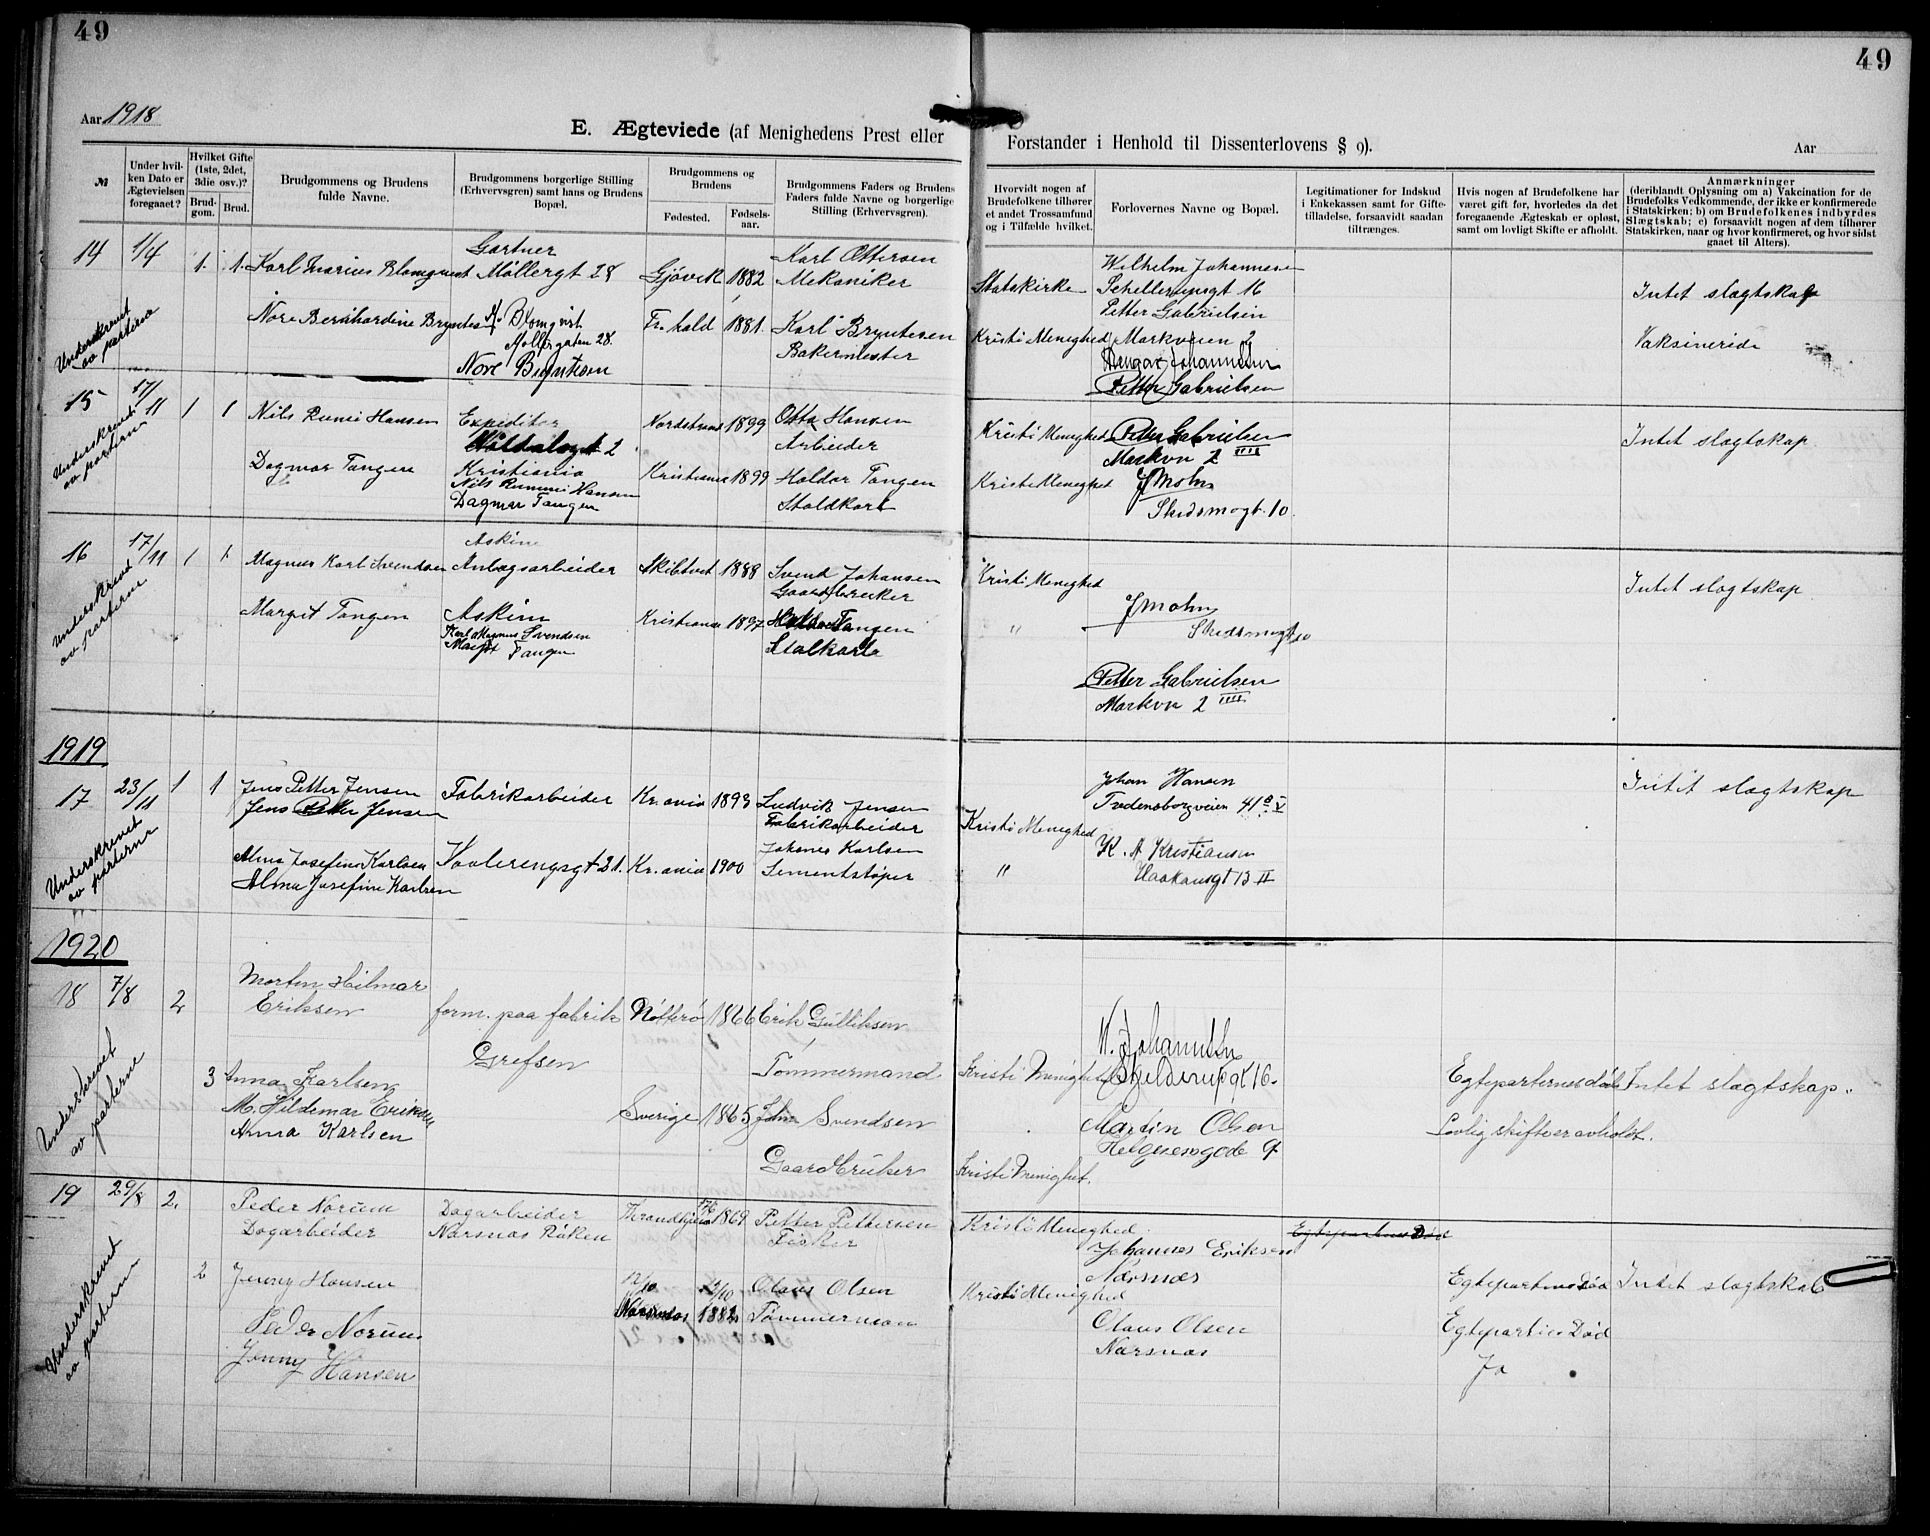 49
49
Aar 1918
E. Ægteviede (af Menighedens Prest eller
Forstander i Henhold til Dissenterlovens § 9).
Aar
№
Under hvil-
ken Dato er
Ægtevielsen
foregaaet?
Hvilket Gifte
(1ste, 2det,
3die osv.)?
Brud-
gom.
Brud.
Brudgommens og Brudens
fulde Navne.
Brudgommens borgerlige Stilling
(Erhvervsgren) samt hans og Brudens
Bopæl.
Brudgommens og
Brudens
Fødested.
Fødsels-
aar.
Brudgommens Faders og Brudens
Faders fulde Navne og borgerlige
Stilling (Erhvervsgren).
Hvorvidt nogen af
Brudefolkene tilhører
et andet Trossamfund
og i Tilfælde hvilket.
Forlovernes Navne og Bopæl.
Legitimationer for Indskud
i Enkekassen samt for Gifte-
tilladelse, forsaavidt saadan
tiltrænges.
Hvis nogen af Brudefolkene har
været gift før, hvorledes da det
foregaaende Ægteskab er opløst,
samt om lovligt Skifte er afholdt.
Anmærkninger
(deriblandt Oplysning om a) Vakcination for de
Brudefolks Vedkommende, der ikke er konfirmerede
i Statskirken; b) om Brudefolkenes indbyrdes
Slægtskab; c) forsaavidt nogen af dem tilhører
Statskirken, naar og hvor konfirmeret, og hvor sidst
gaaet til Alters).
14 1/4 1. 1. Karl Marius Blomqvist
Gartner
Møllergt 28
Gjøvik 1882
Karl Ottersen
Mekaniker
Statskirke
Wilhelm Johannesen
Schellerupsgt 16
Petter Gabrielsen
Intet slagtskap
Underskrevet
av parterne
Nore Bernhardine Bryntesen
K. Blomqvist
Møllergaten 28.
Nore Bryntesen
Fr. hald 1881.
Karl Bryntesen
Bakermester
Kristi Menighed
Markveien 2
Johannesen
Petter Gabrielsen
Vaksinerede
15 17/11 1 1 Nils Rumi Hansen
Expeditør
2
Nordstrand 1899
Otto Hansen
Arbeider
Kristi Menighed
Petter Gabrielsen
Markvn 2 IIII
Intet slagtskap
Underskrevet
av partene
Dagmar Tangen
Kristiania
Nils Rummi Hansen
Dagmar Tangen
Kristiania 1899
Haldor Tangen
Staldkarl
Kristi Menighet
J Mohn
Skedsmogt. 10.
16 17/11 1 1. Magnus Karl Svendsen
Askim
Anlægsarbeider
Skibtvet 1888
Svend Johansen
Gaardbruker
Kristi Menighed
Intet slagtskap
Underskrevet
av parterne
Margit Tangen
Askim
Karl Magnus Svendsen
Margit Tangen
Kristiania 1897
Haldor Tangen
Stalkarl
"
J Mohn
Skedsmogt 10
Petter Gabrielsen
Markvn 2 IIII
1919
17 23/11 1 1 Jens Petter Jensen
Jens Petter Jensen
Fabrikarbeider
Kr.ania 1893
Ludvik Jensen
Fabrikarbeider
Kristi Menighed
Johan Hansen
Trondensborgveien 41
Intet slagtskap
Underskrevet
av parterne
Alma Josefine Karlsen
Alma Josefine Karlsen
Vaalerengsgt 21.
Kr.ania 1900
Johanes Karlsen
Sementstøper
"
K. A Kristiansen
Haakonsgt 13 II
1920
18 7/8 2
Morten Hilmar
Eriksen
form. paa fabrik
Grefsen
Nøtterø 1866
Erik Gulliksen
Tømmermand
Kristi Menighet
W. Johannessen
Skjelderupgt 16.
Egteparternes død
Lovlig skifte er avholdt.
Intet slagtskap.
Underskrevet
av parterne
3 Anna Karlsen
M. Hildemar Eriksen
Anna Karlsen
Sverige 1865
John Svendsen
Gaardbruker
Kristi Menighet.
Martin Olsen
Helgesensgade 9
19 29/8 2.
Peder Norum
Dagarbeider
Dagarbeider
Nærsnæs Røken
Throndhjem 1869
Petter Pettersen
Fisker
Kristi Menighed
Johannes Eriksen
Nærsnæs
Egtepartnes Død
Underskrevet
av parterne
2 Jenny Hansen
Peder Norum
Jenny Hansen
12/10 12/10
Nærsnæs 1882
Olaus Olsen
Tømmerman
Kristi Menighed
Olaus Olsen
Nærsnæs
Egtepartnes Død
Egteparties Død
Ja
Intet slagtskab